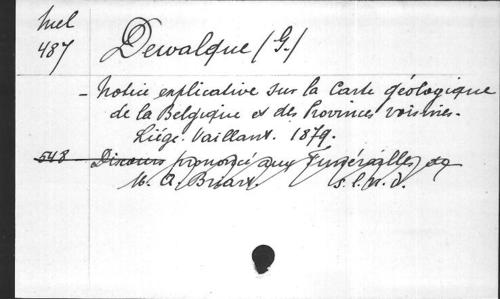 Mel
487
Dewalque (G.)
- Notice explicative sur la Carte géologique
de la Belgique et des Provinces voisines.
Liége. Vaillant. 1879.
548 Discours prononcé aux Funérailles de
M. A. Briart. S. l. n. d.